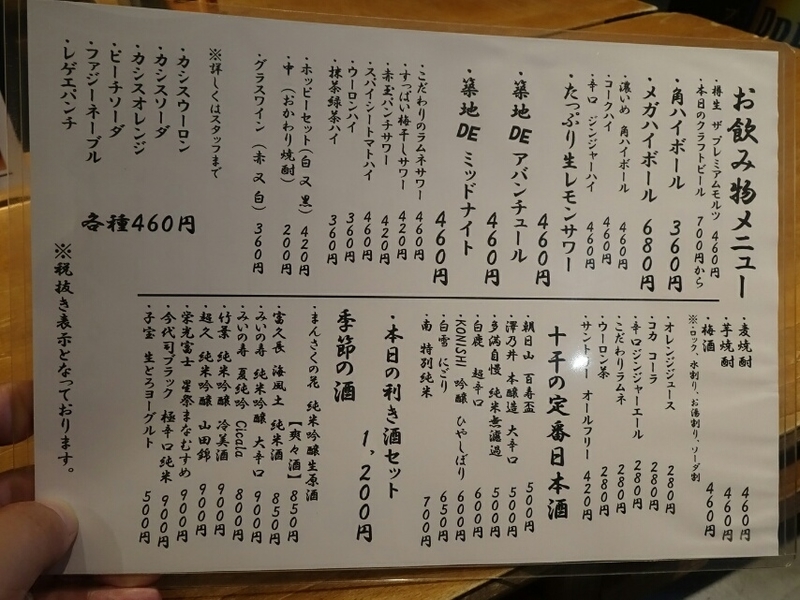 お飲み物メニュー
・樽生 ザ プレミアムモルツ 460円
・本日のクラフトビール 700円から
・角ハイボール 360円
・メガハイボール 680円
・濃いめ 角ハイボール 460円
・コークハイ 460円
・辛口 ジンジャーハイ 460円
・たっぷり生レモンサワー 460円
・築地DEアバンチュール 460円
・築地DEミッドナイト 460円
・こだわりのラムネサワー 460円
・すっぱい梅干しサワー 420円
・赤玉パンチサワー 420円
・スパイシートマトハイ 460円
・ウーロンハイ 360円
・抹茶緑茶ハイ 360円
・ホッピーセット(白又黒) 420円
・中(おかわり焼酎) 200円
・グラスワイン(赤又白) 360円
※詳しくはスタッフまで
・カシスウーロン
・カシスソーダ
・カシスオレンジ
・ピーチソーダ
・ファジーネーブル
・レゲエパンチ
各種460円
・麦焼酎 460円
・芋焼酎 460円
・梅酒 460円
※ロック、水割り、お湯割り、ソーダ割
・オレンジジュース 280円
・コカ コーラ 280円
・辛口ジンジャーエール 280円
・こだわりラムネ 280円
・ウーロン茶 280円
・サントリー オールフリー 420円
十干の定番日本酒
・朝日山 百寿盃 500円
・澤乃井 本醸造 大辛口 500円
・多満自慢 純米無濾過 500円
・白鹿 超辛口 600円
・KONISHI 吟醸 ひやしぼり 600円
・白雪 にごり 650円
・南 特別純米 700円
・本日の利き酒セット 1,200円
季節の酒
・まんさくの花 純米吟醸生原酒
【爽々酒】 850円
・富久長 海風土 純米酒 850円
・みいの寿 純米吟醸 大辛口 900円
・みいの寿 夏純吟 Cicala 800円
・竹葉 純米吟醸 冷美酒 900円
・超久 純米吟醸 山田錦 900円
・栄光冨士 星祭まなむすめ 900円
・今代司ブラック 極辛口純米 900円
・子宝 生とろヨーグルト 500円
※税抜き表示となっております。